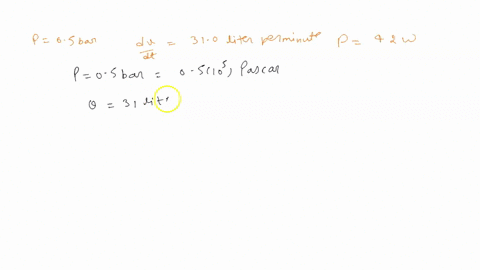 P = 0.5 bar dv/dt = 31.0 liter per minute P = 42 W
P = 0.5 bar = 0.5(10^5) Pascar
Q = 31 lite